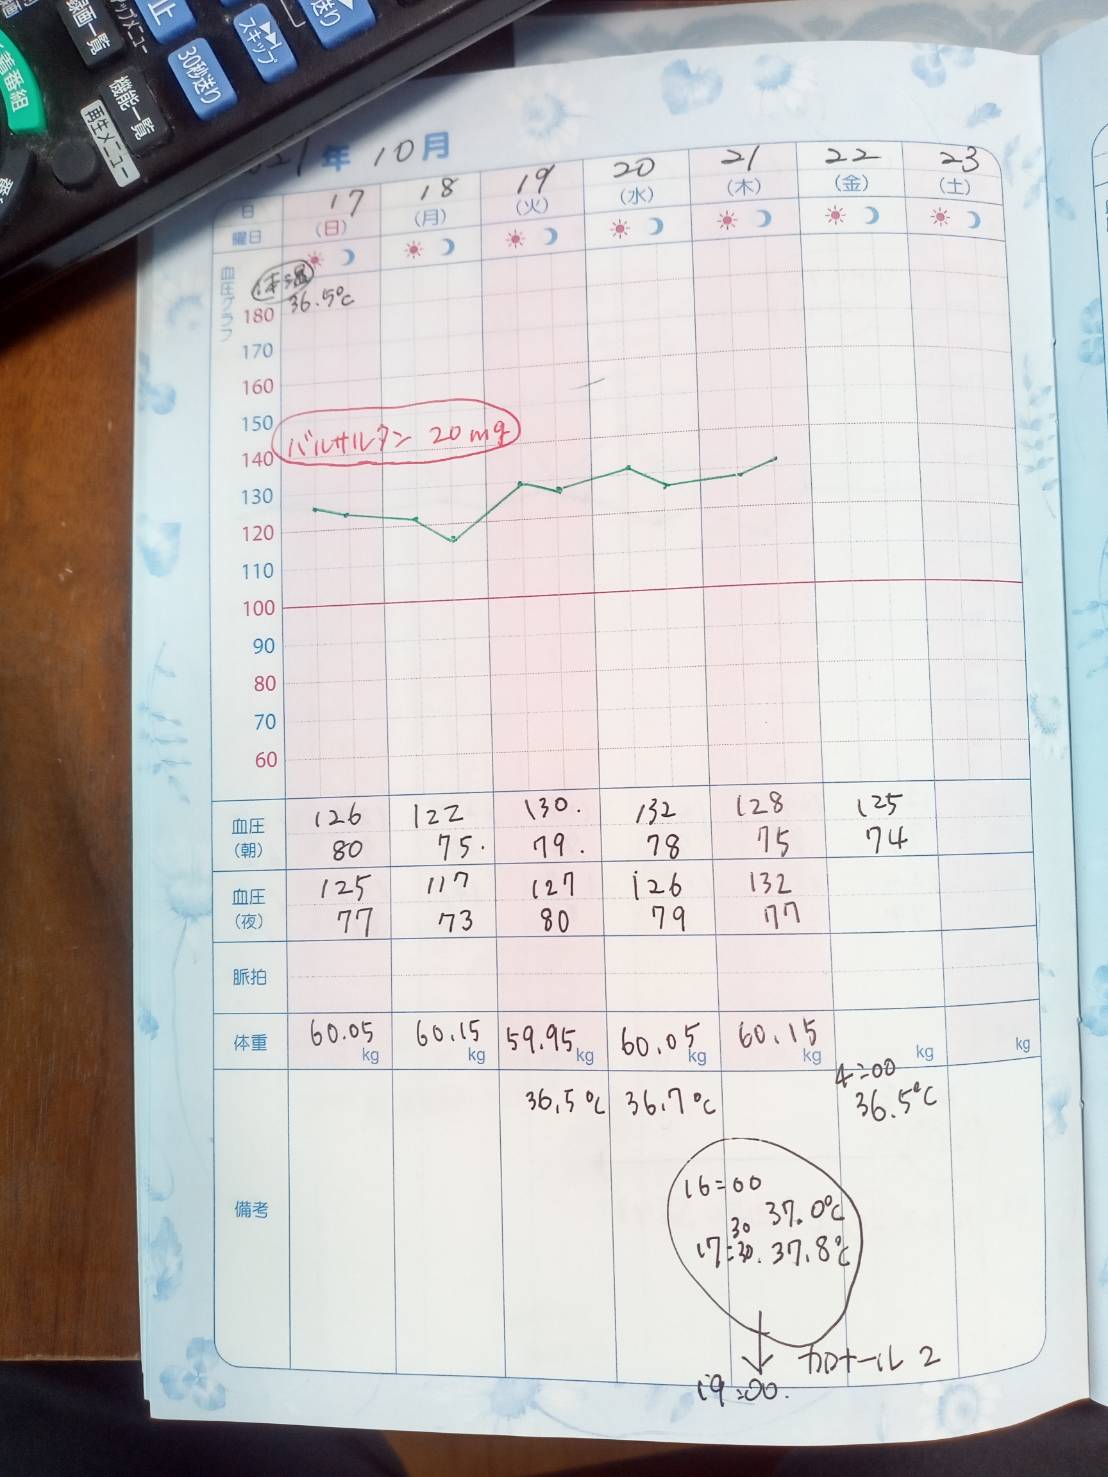 録画一覧
30秒送り
スキップ
送り
機能一覧
再生メニュー
番組
21年 10月
日 17 18 19 20 21 22 23
曜日 (日) (月) (火) (水) (木) (金) (土)
血圧グラフ
体温
36.5℃
180
170
160
150
バルサルタン 20mg
140
130
120
110
100
90
80
70
60
血圧(朝) 126 122 130. 132 128 125
80 75. 79. 78 75 74
血圧(夜) 125 117 127 126 132
77 73 80 79 77
脈拍
体重 60.05kg 60.15kg 59.95kg 60.05kg 60.15kg kg kg
4:00
36.5℃ 36.7℃ 36.5℃
備考
16:00
37.0℃
30
17:30. 37.8℃
カロナール 2
19:00.